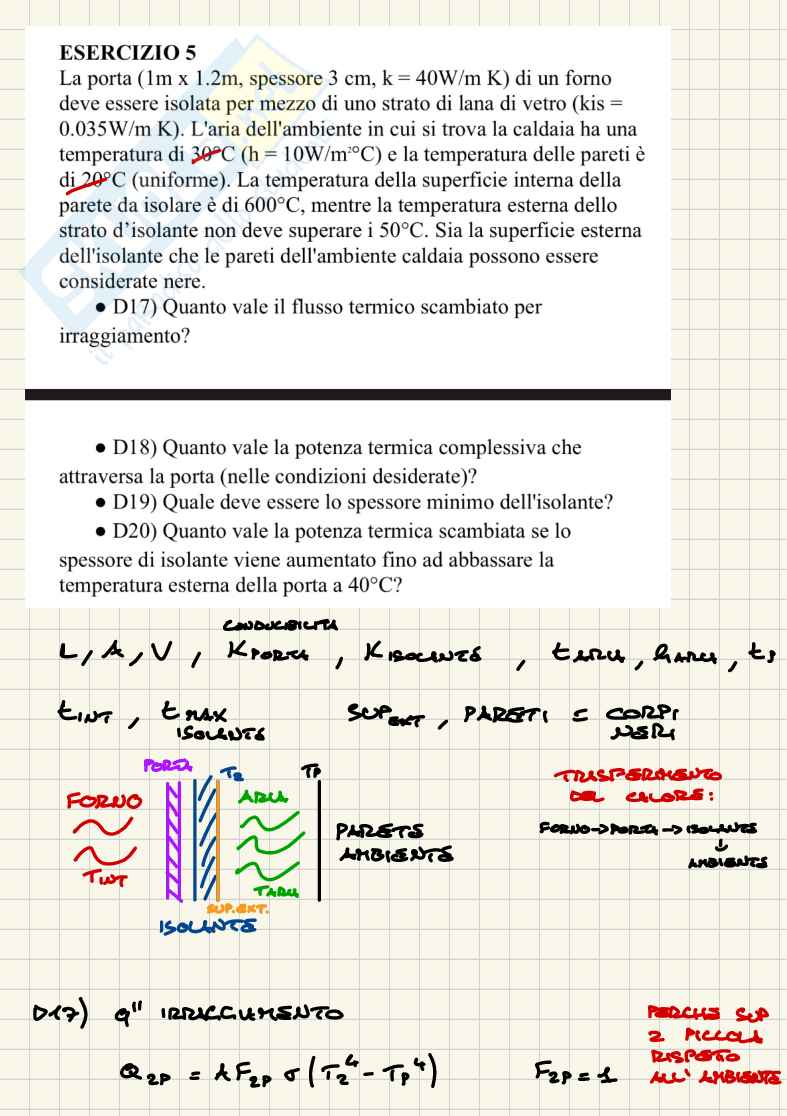 ESERCIZIO 5
La porta (1m x 1.2m, spessore 3 cm, k = 40W/m K) di un forno
deve essere isolata per mezzo di uno strato di lana di vetro (kis =
0.035W/m K). L'aria dell'ambiente in cui si trova la caldaia ha una
temperatura di 30°C (h = 10W/m²°C) e la temperatura delle pareti è
di 20°C (uniforme). La temperatura della superficie interna della
parete da isolare è di 600°C, mentre la temperatura esterna dello
strato d’isolante non deve superare i 50°C. Sia la superficie esterna
dell'isolante che le pareti dell'ambiente caldaia possono essere
considerate nere.
● D17) Quanto vale il flusso termico scambiato per
irraggiamento?
● D18) Quanto vale la potenza termica complessiva che
attraversa la porta (nelle condizioni desiderate)?
● D19) Quale deve essere lo spessore minimo dell'isolante?
● D20) Quanto vale la potenza termica scambiata se lo
spessore di isolante viene aumentato fino ad abbassare la
temperatura esterna della porta a 40°C?
CONDUCIBILITÀ
L, A, V, K PORTA, K ISOLANTE, t ARIA, h ARIA, t P
t INT, t MAX ISOLANTE SUP EXT, PARETI = CORPI NERI
PORTA T2 TP
FORNO ARIA
TINT TARIA
PARETE
AMBIENTE
SUP. EXT.
ISOLANTE
TRASFERIMENTO
DEL CALORE:
FORNO → PORTA → ISOLANTE
↓
AMBIENTE
D17) q'' IRRAGGIAMENTO
Q2P = A F2P σ (T2⁴ - TP⁴) F2P = 1
PERCHÈ SUP
2 PICCOLA
RISPETTO
ALL'AMBIENTE